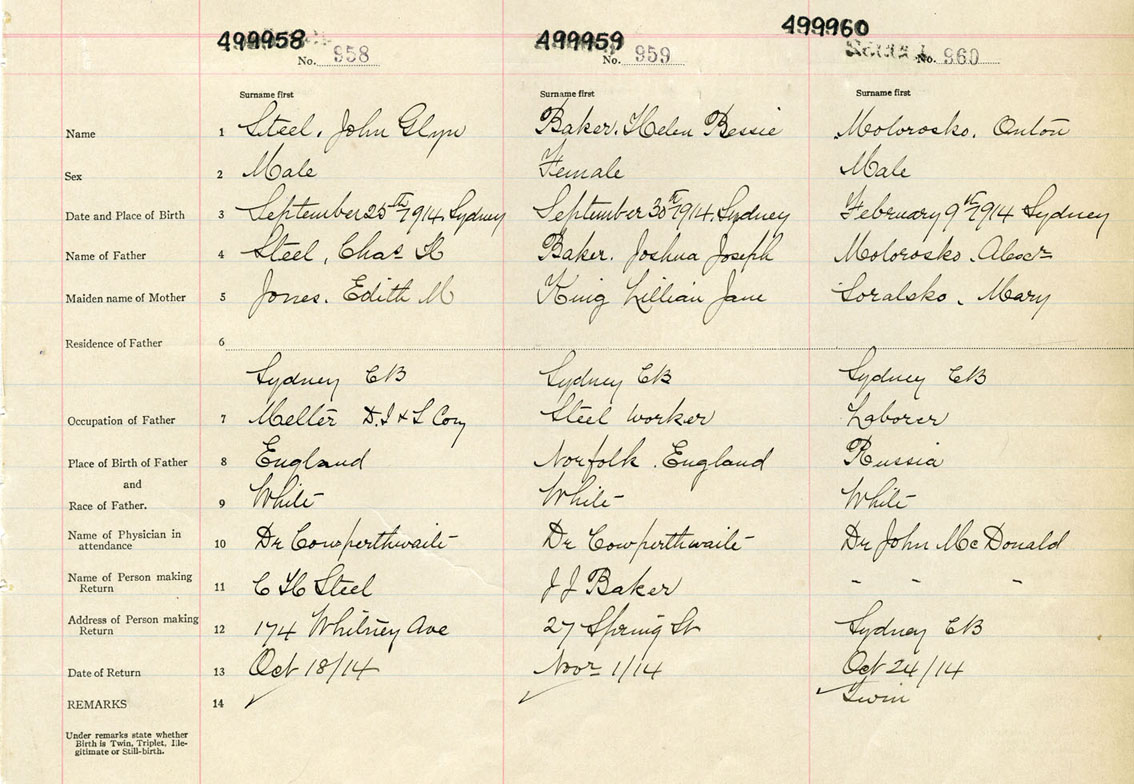 499958 499959 499960
No. 958 No. 959 No. 960
Surname first Surname first Surname first
Name 1 Steel, John Glyn Baker, Helen Bessie Molorosko, Anton
Sex 2 Male Female Male
Date and Place of Birth 3 September 25th 1914 Sydney September 30th 1914 Sydney February 9th 1914 Sydney
Name of Father 4 Steel, Chas H Baker, Joshua Joseph Molorosko, Alexr
Maiden name of Mother 5 Jones, Edith M King Lillian Jane Soralsko, Mary
Residence of Father 6
Sydney CB Sydney CB Sydney CB
Occupation of Father 7 Melter D.I & S Coy Steel worker Laborer
Place of Birth of Father 8 England Norfolk, England Russia
and
Race of Father. 9 White White White
Name of Physician in
attendance 10 Dr Cowperthwaite Dr Cowperthwaite Dr John McDonald
Name of Person making
Return 11 C H Steel J J Baker - - -
Address of Person making
Return 12 174 Whitney Ave 27 Spring St Sydney CB
Date of Return 13 Oct 18/14 Novr 1/14 Oct 24/14
REMARKS 14 Twin
Under remarks state whether
Birth is Twin, Triplet, Ille-
gitimate or Still-birth.